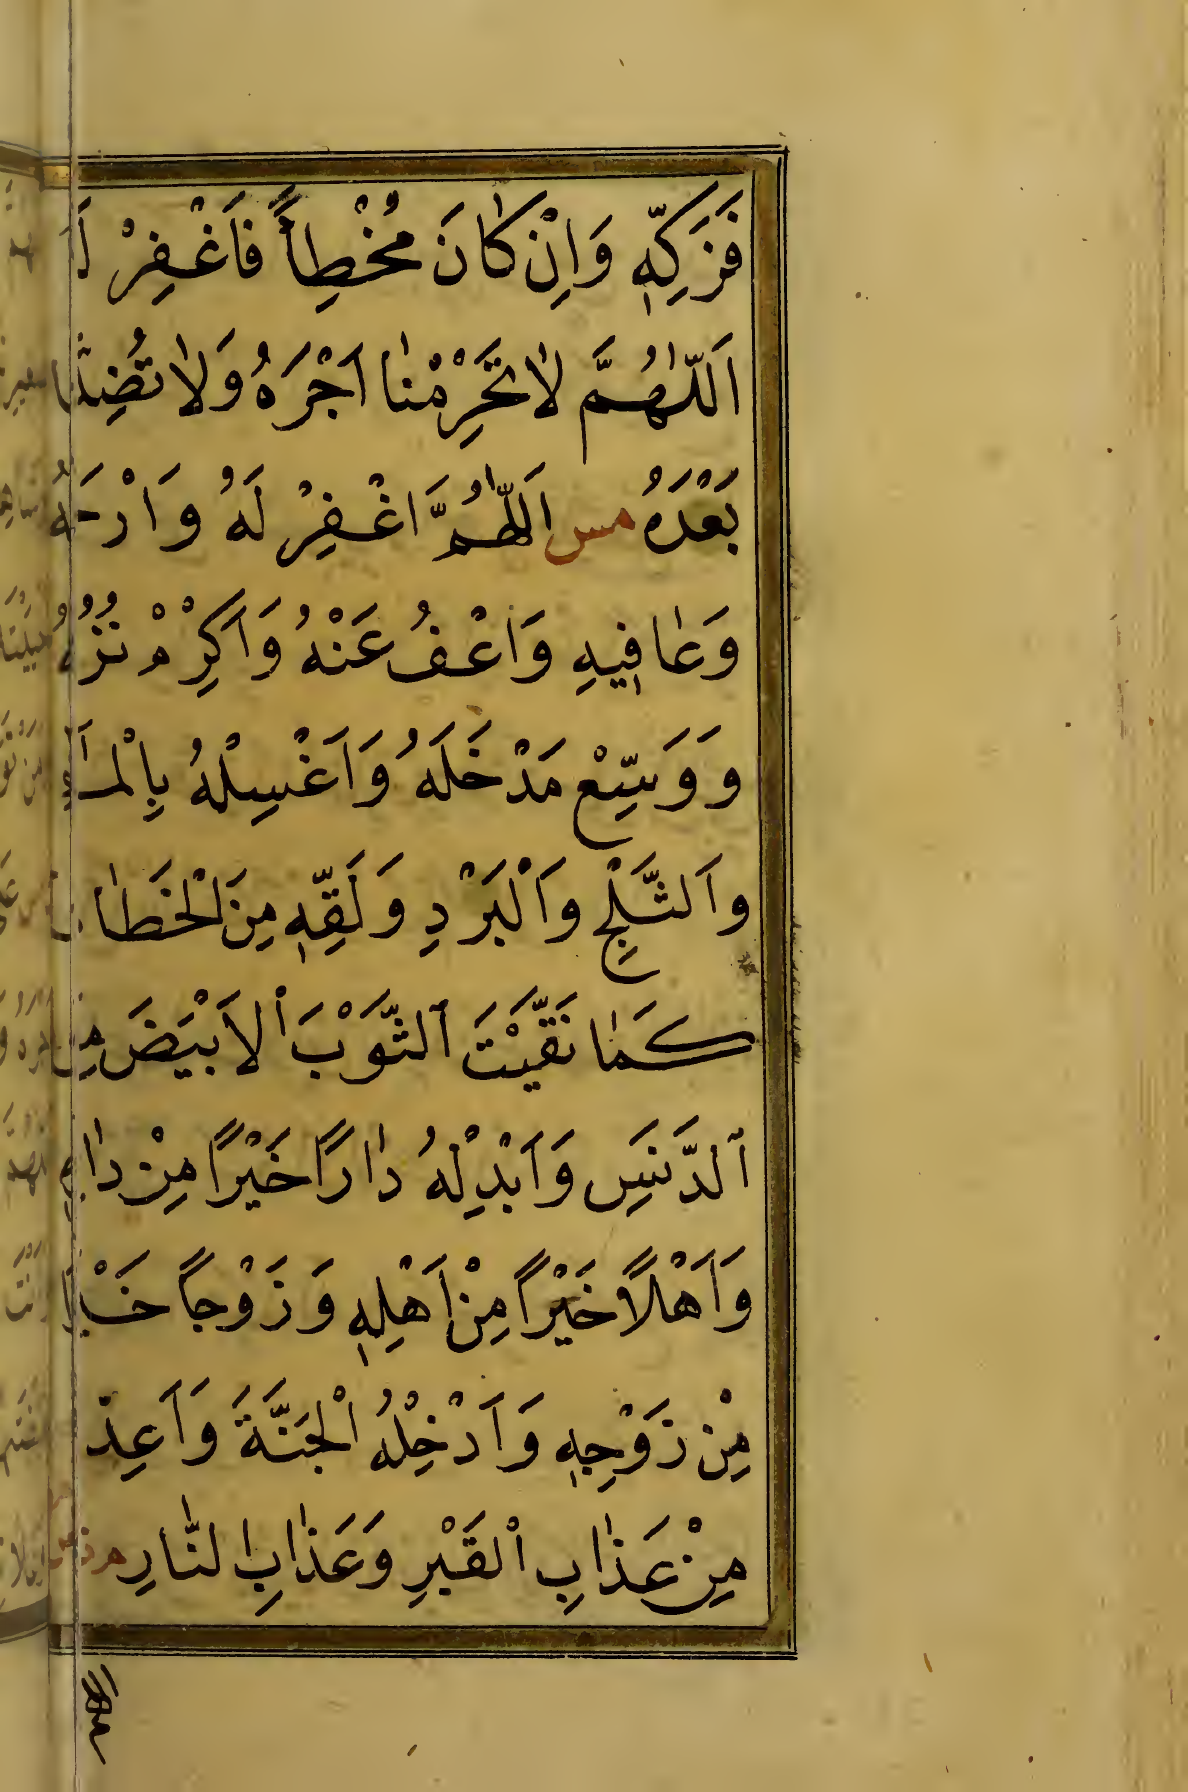 فَزَكِّهٖ وَاِنْ كٰانَ مُخْطِأً فَاَغْفِرْ
اَللّٰهُمَّ لٰا تَحْرِمْنٰا اَجْرَهُ وَلٰا تُضِلَّنا
بَعْدَهُ مس اَللّٰهُمَّ اغْفِرْ لَهُ وَارْحَمْهُ
وَعٰافِيهِ وَاَعْفُ عَنْهُ وَاَكْرِمْ نُزُلَهُ
وَوَسِّعْ مَدْخَلَهُ وَاَغْسِلْهُ بِالْمَآءِ
واَلثَّلْجِ واَلْبَرْدِ وَنَقِّهٖ مِنَ الْخَطٰايا
كَمٰا نَقَّيْتَ ٱلثَّوْبَ ٱلاَبْيَضَ مِنَ
ٱلدَّنَسِ وَاَبْدِلْهُ دٰارًا خَيْرًا مِنْ دٰارِهِ
وَاَهْلًا خَيْرًا مِنْ اَهْلِهٖ وَزَوْجاً خَيْرًا
مِنْ زَوْجِهٖ وَاَدْخِلْهُ ٱلْجَنَّةَ وَاَعِذْ
مِنْ عَذٰابِ ٱلقَبْرِ وَعَذٰابِ ٱلنّٰارِ م